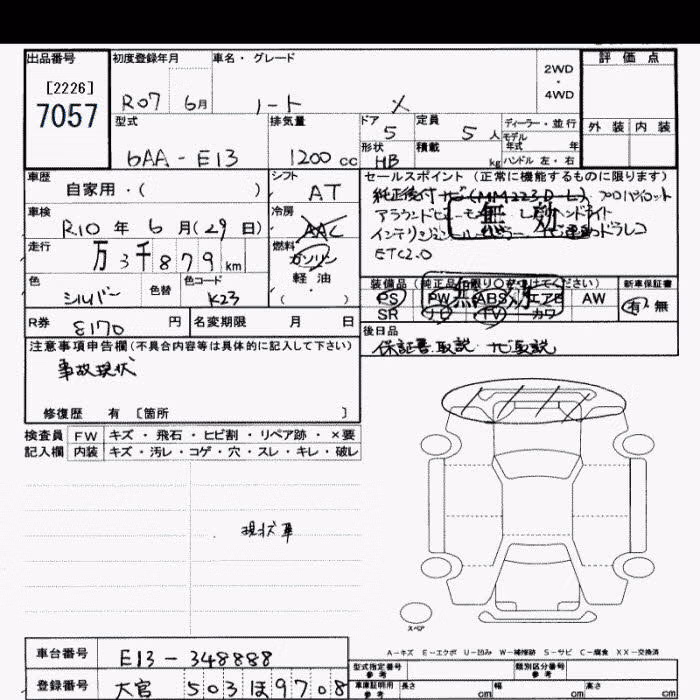 出品番号
[2226]
7057
初度登録年月
R07 6月
車名・グレード
ノート X
2WD
・
4WD
評価点
外装 内装
型式
6AA-E13
排気量
1200cc
ドア
5
定員
5人
ディーラー・並行
モデル
年式 年
形状
HB
積載
kg
ハンドル 左・右
車歴
自家用・( )
シフト
AT
車検
R10年6月(29日)
冷房
AAC
走行
万3千879km
燃料
ガソリン
軽油
( )
色
シルバー
色替
色コード
K23
R券
8170円
名変期限 月 日
セールスポイント(正常に機能するものに限ります)
純正後付ナビ(MM223D-L) プロパイロット
アラウンドビューモ
無効
ETC2.0
装備品(純正品
無効
PS PW ABS エアB AW
SR ナビ TV カワ
新車保証書
有・無
後日品
保証書、取説、ナビ取説
注意事項申告欄(不具合内容等は具体的に記入して下さい)
事故現状
修復歴 有 [箇所 ]
検査員
記入欄
FW キズ・飛石・ヒビ割・リペア跡・×要
内装 キズ・汚レ・コゲ・穴・スレ・キレ・破レ
現状車
スペア
A-キズ E-エクボ U-凹み W-補修跡 S-サビ C-腐食 XX-交換済
車台番号
E13-348888
登録番号
大宮 503 ほ 9708
型式指定番号
参考
類別区分番号
参考
車庫証明用
参考
長さ cm 幅 cm 高さ cm